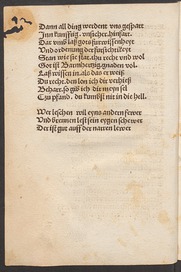 Dann all ding werdent vns gespart
Inn künfftig. vnsicher. hinfart.
Dar vmb laß gots fürwissenheyt
Vnd ordenung der fürsichtikeyt
Stan wie sie stat. thů recht vnd wol
Got ist Barmhertzig. gnaden vol.
Laß wissen in. als das er weiß
Dů recht. den lon ich dir verheiß
Beharr. so gib ich dir myn sel
Zů pfand. du kumbst nit in die hell.
Wer leschen will eyns andern fewer
Vnd brennen lest sein eygen schewer
Der ist gut auff der narren lewer